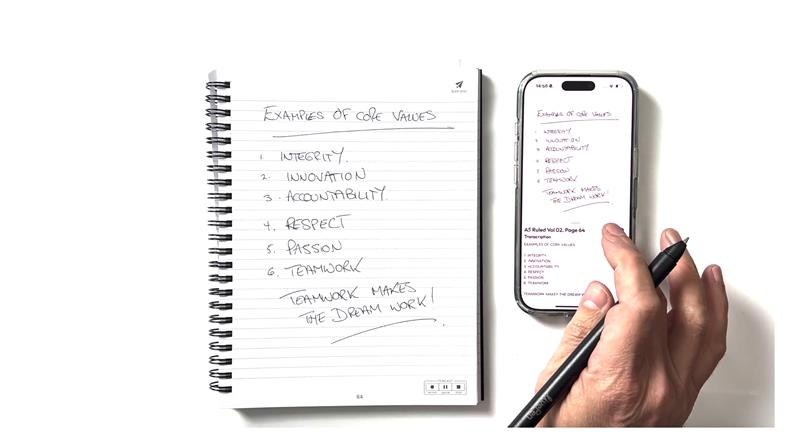 EXAMPLES OF CORE VALUES
1. INTEGRITY.
2. INNOVATION
3. ACCOUNTABILITY.
4. RESPECT
5. PASSION
6. TEAMWORK
TEAMWORK MAKES
THE DREAM WORK!
64
14:58
EXAMPLES OF CORE VALUES
1 INTEGRITY
2 INNOVATION
3 ACCOUNTABILITY
4 RESPECT
5 PASSION
6 TEAMWORK
TEAMWORK MAKES
THE DREAM WORK!
A5 Ruled Vol 02, Page 64
Transcription
EXAMPLES OF CORE VALUES
1. INTEGRITY
2. INNOVATION
3. ACCOUNTABILITY
4. RESPECT
5. PASSION
6. TEAMWORK